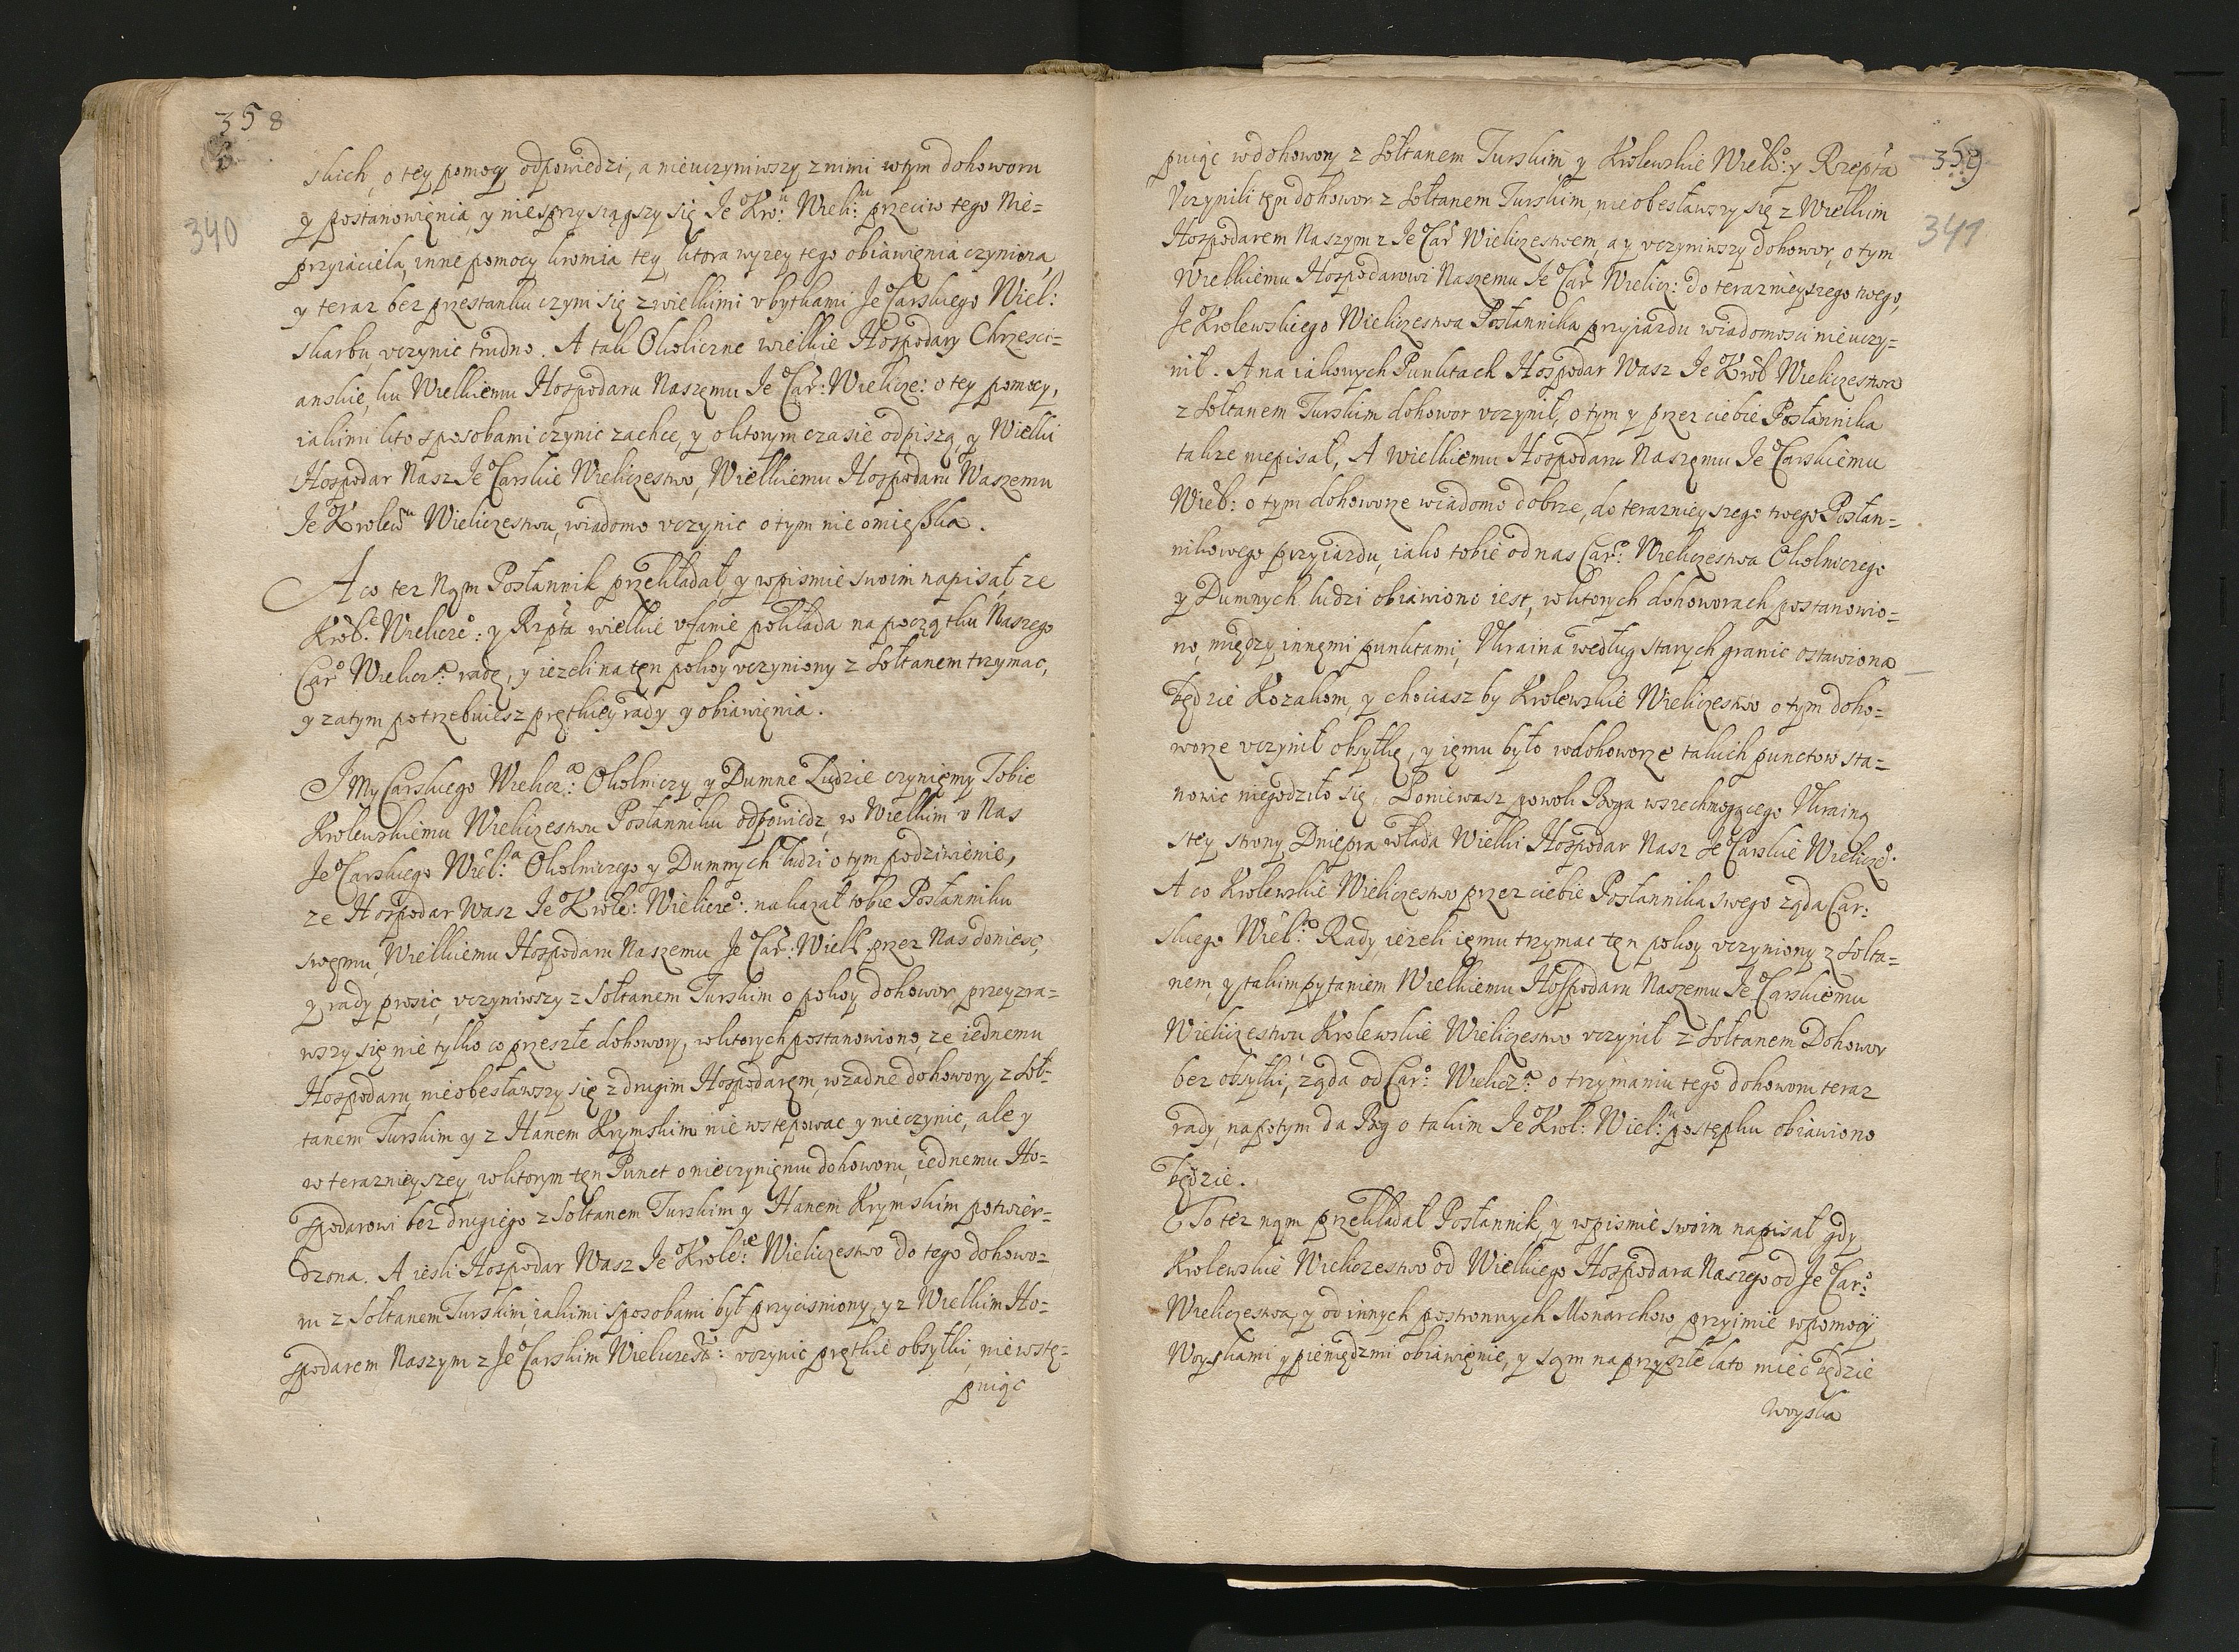 358
340
skich, o tey pomocy odpowiedzi, a nieuczyniwszy z nimi w tym dohoworu
y postanowięnia, y niesprzysiągszy się Jeº Kroº:ͧ Wieli:ͧ przeciw tego Nie=
przyiaciela, inne pomocy kromia tey, ktora wyzey tego obiawięnia czyniona,
y teraz bez przestanku czyni się z wielkimi ubytkami Jeº Carskiego Wiel:
skarbu, uczynic trudno. A tak Okoliczne wielkie Hospodary Chrzesci=
anskie, ku Wielkiemu Hospodaru Naszęmu Jeº Car: Wielicze: o tey pomocy,
iakimi kto sposobami czynic zachce, y o ktorym czasie odpiszą, y Wielki
Hospodar Nasz Jeº Carskie Wieliczestwo, Wielkiemu Hospodaru Waszemu
Jeº Krolewu Wieliczestwu, wiadomo uczynic o tym nie omięszka.
A co tez Nąm Posłannik przekładał, y w pismie swoim napisał, ze
Krole: Wieliczeo: y Rzpta wielkie ufanie pokłada na początku Naszego
Caro Wieliczs: radę, y iezeli na tęn pokoy uczyniony z Sołtanem trzymac,
y zatym potrzebuiesz prętkiey rady y obiawięnia.
I My Carskiego Wielicza: Okolniczy y Dumne Ludzie czynięmy Tobie
Krolewskiemu Wieliczestwu Posłanniku odpowiedz, w Wielkim u Nas
Jeº Carskiego Wiel:a Okolniczego y Dumnych ludzi o tym podziwienie,
ze Hospodar Wasz Jeº Krole: Wieliczeo: nakazał tobie Posłanniku
swęmu, Wielkiemu Hospodaru Naszemu Jeº Car: Wielk przez Nas doniesc,
y rady prosic, uczyniwszy z Sołtanem Turskim o pokoy dohowor, przeyzra=
wszy się nie tylko co przeszłe dohowory, w ktorych postanowiono, ze iednemu
Hospodaru, nieobesławszy się z drugim Hospodaręm, w zadne dohowory z Soł=
tanem Turskim y z Hanem Krymskim nie wstępowac y nie czynic, ale y
w teraznieyszey, w ktorym tęn Punct o nieczynięniu dohoworu, iednemu Ho=
spodarowi bez drugiego z Sołtanem Turskim y Hanem Krymskim potwier=
dzona. A iesli Hospodar Wasz Jeº Krole:ie Wieliczestwo do tego dohowo=
ru z Sołtanem Turskim, iakimi sposobami był przycisniony, y z Wielkim Ho=
spodarem Naszym z Jeº Carskim Wieliczest: uczynic prętkie obsyłki, nie wstę=
puiąc
359
341
puiąc w dohowory z Sołtanem Turskim, y Krolewskie Wielo: y Rzepta
Uczynili tęn dohowor z Sołtanem Turskim, nie obesławszy się z Wielkim
Hospodarem Naszym z Jeº Car Wieliczestwem, a y uczyniwszy dohowor, o tym
Wielkiemu Hospodarowi Naszemu Jeº Car Wielicz: do teraznieyszego twego,
Jeº Krolewskiego Wieliczestwa Posłannika przyiazdu wiadomosci nie uczy=
nił. A na iakowych Punktach Hospodar Wasz Jeº Krol Wieliczestwo
z Sołtanem Turskim dohowor uczynił, o tym y przez ciebie Posłannika
takze niepisał, A wielkiemu Hospodaru Naszęmu Jeº Carskiemu
Wiel: o tym dohoworze wiadomo dobrze, do teraznieyszego twego Posłan=
nikowego przyiazdu, iako tobie od nas Caro: Wieliczestwa Okolniczego
y Dumnych ludzi obiawiono iest, w ktorych dohoworach postanowio=
no, między innęmi punktami, Ukraina według starych granic ostawiona
będzie Kozakom, y chociasz by Krolewskie Wieliczestwo o tym doho=
worze uczynił obsyłkę, y ięmu było w dohoworze takich punctow sta=
nowic niegodziło się, Poniewasz powoli Boga wszechmogącego Ukrainą
s tey strony Dniepra włada Wielki Hospodar Nasz Jeº Carskie Wieliczeo.
A co Krolewskie Wieliczestwo przez ciebie Posłannika swego ząda Car:
skiego Wiela: Rady, iezeli ięmu trzymac tęn pokoy uczyniony z Sołta=
nem, y takim pytaniem Wielkiemu Hospodaru Naszemu Jeº Carskiemu
Wieliczestwu Krolewskie Wieliczestwo uczynił z Sołtanem Dohowor
bez obsyłki, ząda od Caro: Wielicza: o trzymaniu tego dohoworu teraz
rady, napotym da Bog o takim Jeº Krol: Wiel:u postępku obiawiono
będzie.
Co tez nąm przekładał Posłannik, y w pismie swoim napisał gdy
Krolewskie Wieliczestwo od Wielkiego Hospodara Naszego od Jeº Caro:
Wieliczestwa, y od innych postronnych Monarchow przyimie w pomocy
Woyskami y pieniędzmi obiawięnie, y sąm na przyszłe lato miec będzie
woyska